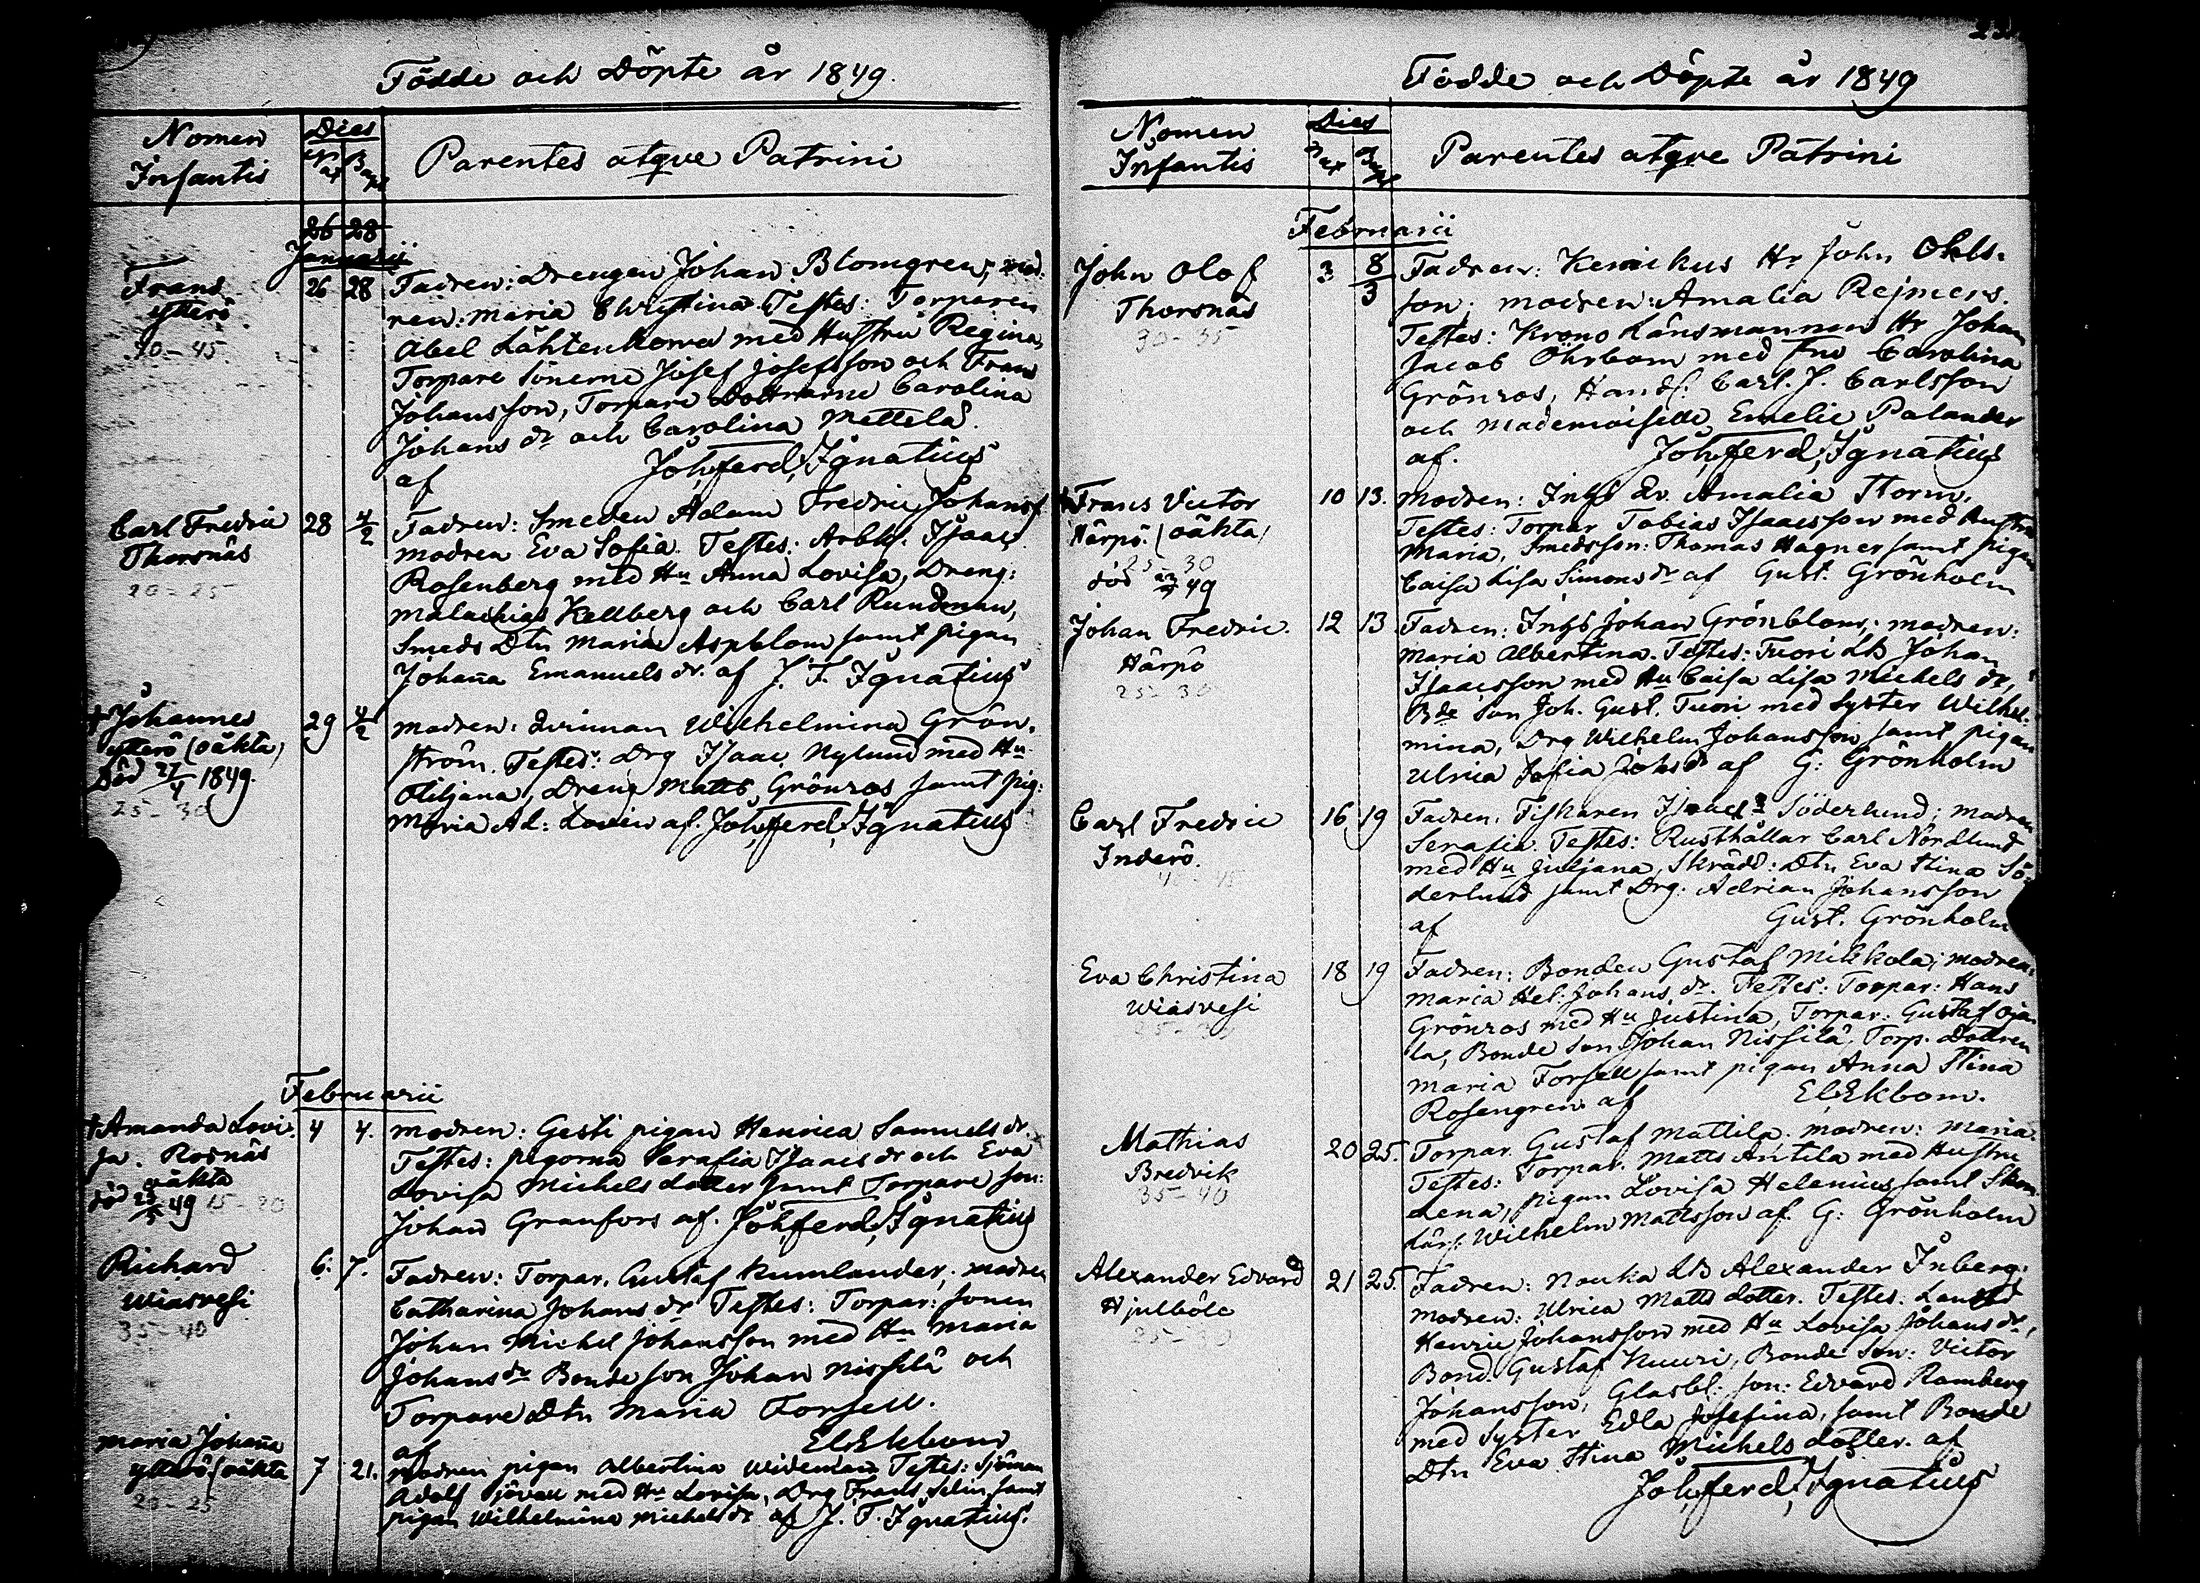 Födde och Döpte år 1849.
Nomen Infantis
Dies
Nat Bapt
Parentes atqve Patrini
26 28
Januarii
Frans
ytterö
40-45
26 28
Fadren: Drengen Johan Blomgren, mod-
ren: Maria Christina. Testes: Torparen
Abel Lähtenkorva med Hustru Regina,
Torpare Sönerne Josef Josefsson och Frans
Johansson, Torpare Döttrarne Carolina
Johans dr och Carolina Mettelä.
af Joh, ferd, Ignatius
Carl Fredric
Thorsnäs
20-25
28 4/2
Fadren: Smeden Adam Fredric Johans.
modren Eva Sofia. Testes: Arbk. Isaac
Rosenberg med Hu Anna Lovisa, Dreng:
Malachias Kellberg och Carl Rundman,
Smeds Dtn Maria Aspblom samt pigan
Johaña Emanuels dr. af J. F. Ignatius
+ Johannes
ytterö (oäkta)
Död 27/4 1849.
25-30
29 4/2
modren: Qvinnan Wilhelmina Grön-
ström. Testes: Drg Isaac Nylund med Hu
Otiljana, Dreng Matts Grönros samt pig:
Maria Ad: Lovin af. Joh, ferd, Ignatius
Februarii
+ Amanda Lovi-
sa. Rosnäs
oäkta
död 23/5 49 15-20
4 4.
modren: Gesti pigan Henrica Samuels dr.
Testes: pigorna Serafia Isaacs dr och Eva
Lovisa Michels dotter samt Torpare son:
Johan Granfors af. Joh, ferd, Ignatius
Richard
Wiasvesi
35-40
6. 7.
Fadren: Torpar. Gustaf Kumlander; modren
Catharina Johans dr Testes: Torpar: sonen
Johan Michel Johansson med Hu Maria
Johans dr Bonde son Johan Nissilä och
Torpare Dtn Maria Forsell.
af El Ekbom
Maria Johaña
ytterö (oäkta
20-25
7 21.
Modren pigan Albertina Wideman Testes: Sjöman
Adolf Sjövall med Hu Lovisa, Drg Frans Selin, samt
pigan Wilhelmina Michels dr af J. F. Ignatius.
Födde och Döpte år 1849
Nomen Infantis
Dies
Nat Bapt
Parentes atqve Patrini
Februarii
John Olof
Thorsnäs
30-35
3 8/3
Fadren: Kemikus Hr John Ohls-
son; modren: Amalia Rejmers.
Testes: Krono Länsmannen Hr Johan
Jacob Öhrbom med Fru Carolina
Grönros, Handl: Carl. J. Carlsson
och Mademoiselle Emelie Palander
af. Joh, ferd, Ignatius
+ Frans Victor
Härpö. (oäkta)
25-30
död 49
10 13.
Modren: Inhs Qv. Amalia Storm.
Testes: Torpar Tobias Isaacsson med Hustru
Maria, Smedsson: Thomas Hagner samt pigan
Caisa Lisa Simons dr af Gust. Grönholm
Johan Fredric.
Härpö
25-30
12 13
Fadren: Inhs Johan Grönblom; modren:
Maria Albertina. Testes: Tuori LB Johan
Isaacsson med Hu Caisa Lisa Michels dr,
Bde Son Joh. Gust. Tuori med Syster Wilhel-
mina, Drg Wilhelm Johansson samt pigan
Ulrica Sofia Johs dr af G: Grönholm
Carl Fredric
Inderö.
40-45
16 19
Fadren: Fiskaren Isaac Söderlund; modren
Serafia. Testes: Rusthållar Carl Nordlund
med Hu Juljana, Skrädd: Dtn Eva Stina Sö-
derlund samt Drg: Adrian Johansson
af Gust. Grönholm
Eva Christina
Wiasvesi
25-30
18 19
Fadren: Bonden Gustaf Mikkola; modren:
Maria Hel: Johans dr. Testes: Torpar: Hans
Grönros med Hu Justina, Torpar: Gustaf Oja-
la, Bonde Son Johan Nissilä, Torp. Dottren
Maria Forsell samt pigan Anna Stina
Rosengren af El Ekbom.
Mathias
Bredvik
35-40
20 25.
Torpar. Gustaf Mattila, modren: Maria.
Testes: Torpar. Matts Antila med Hustru
Lena, pigan Lovisa Helenius samt Skom
Lärl: Wilhelm Mattsson af. G: Grönholm
Alexander Edvard
Hjulböle
25-30
21 25.
Fadren: Nouka LB Alexander Inberg;
modren: Ulrica Matts dotter. Testes: Landbd
Henric Johansson med Hu Lovisa Johans dr,
Bond. Gustaf Knuuri, Bonde Son: Victor
Johansson, Glasbl: son: Edvard Ramberg
med Syster Edla Josefina, samt Bonde
Dtn Eva Stina Michels dotter. af
Joh, ferd, Ignatius